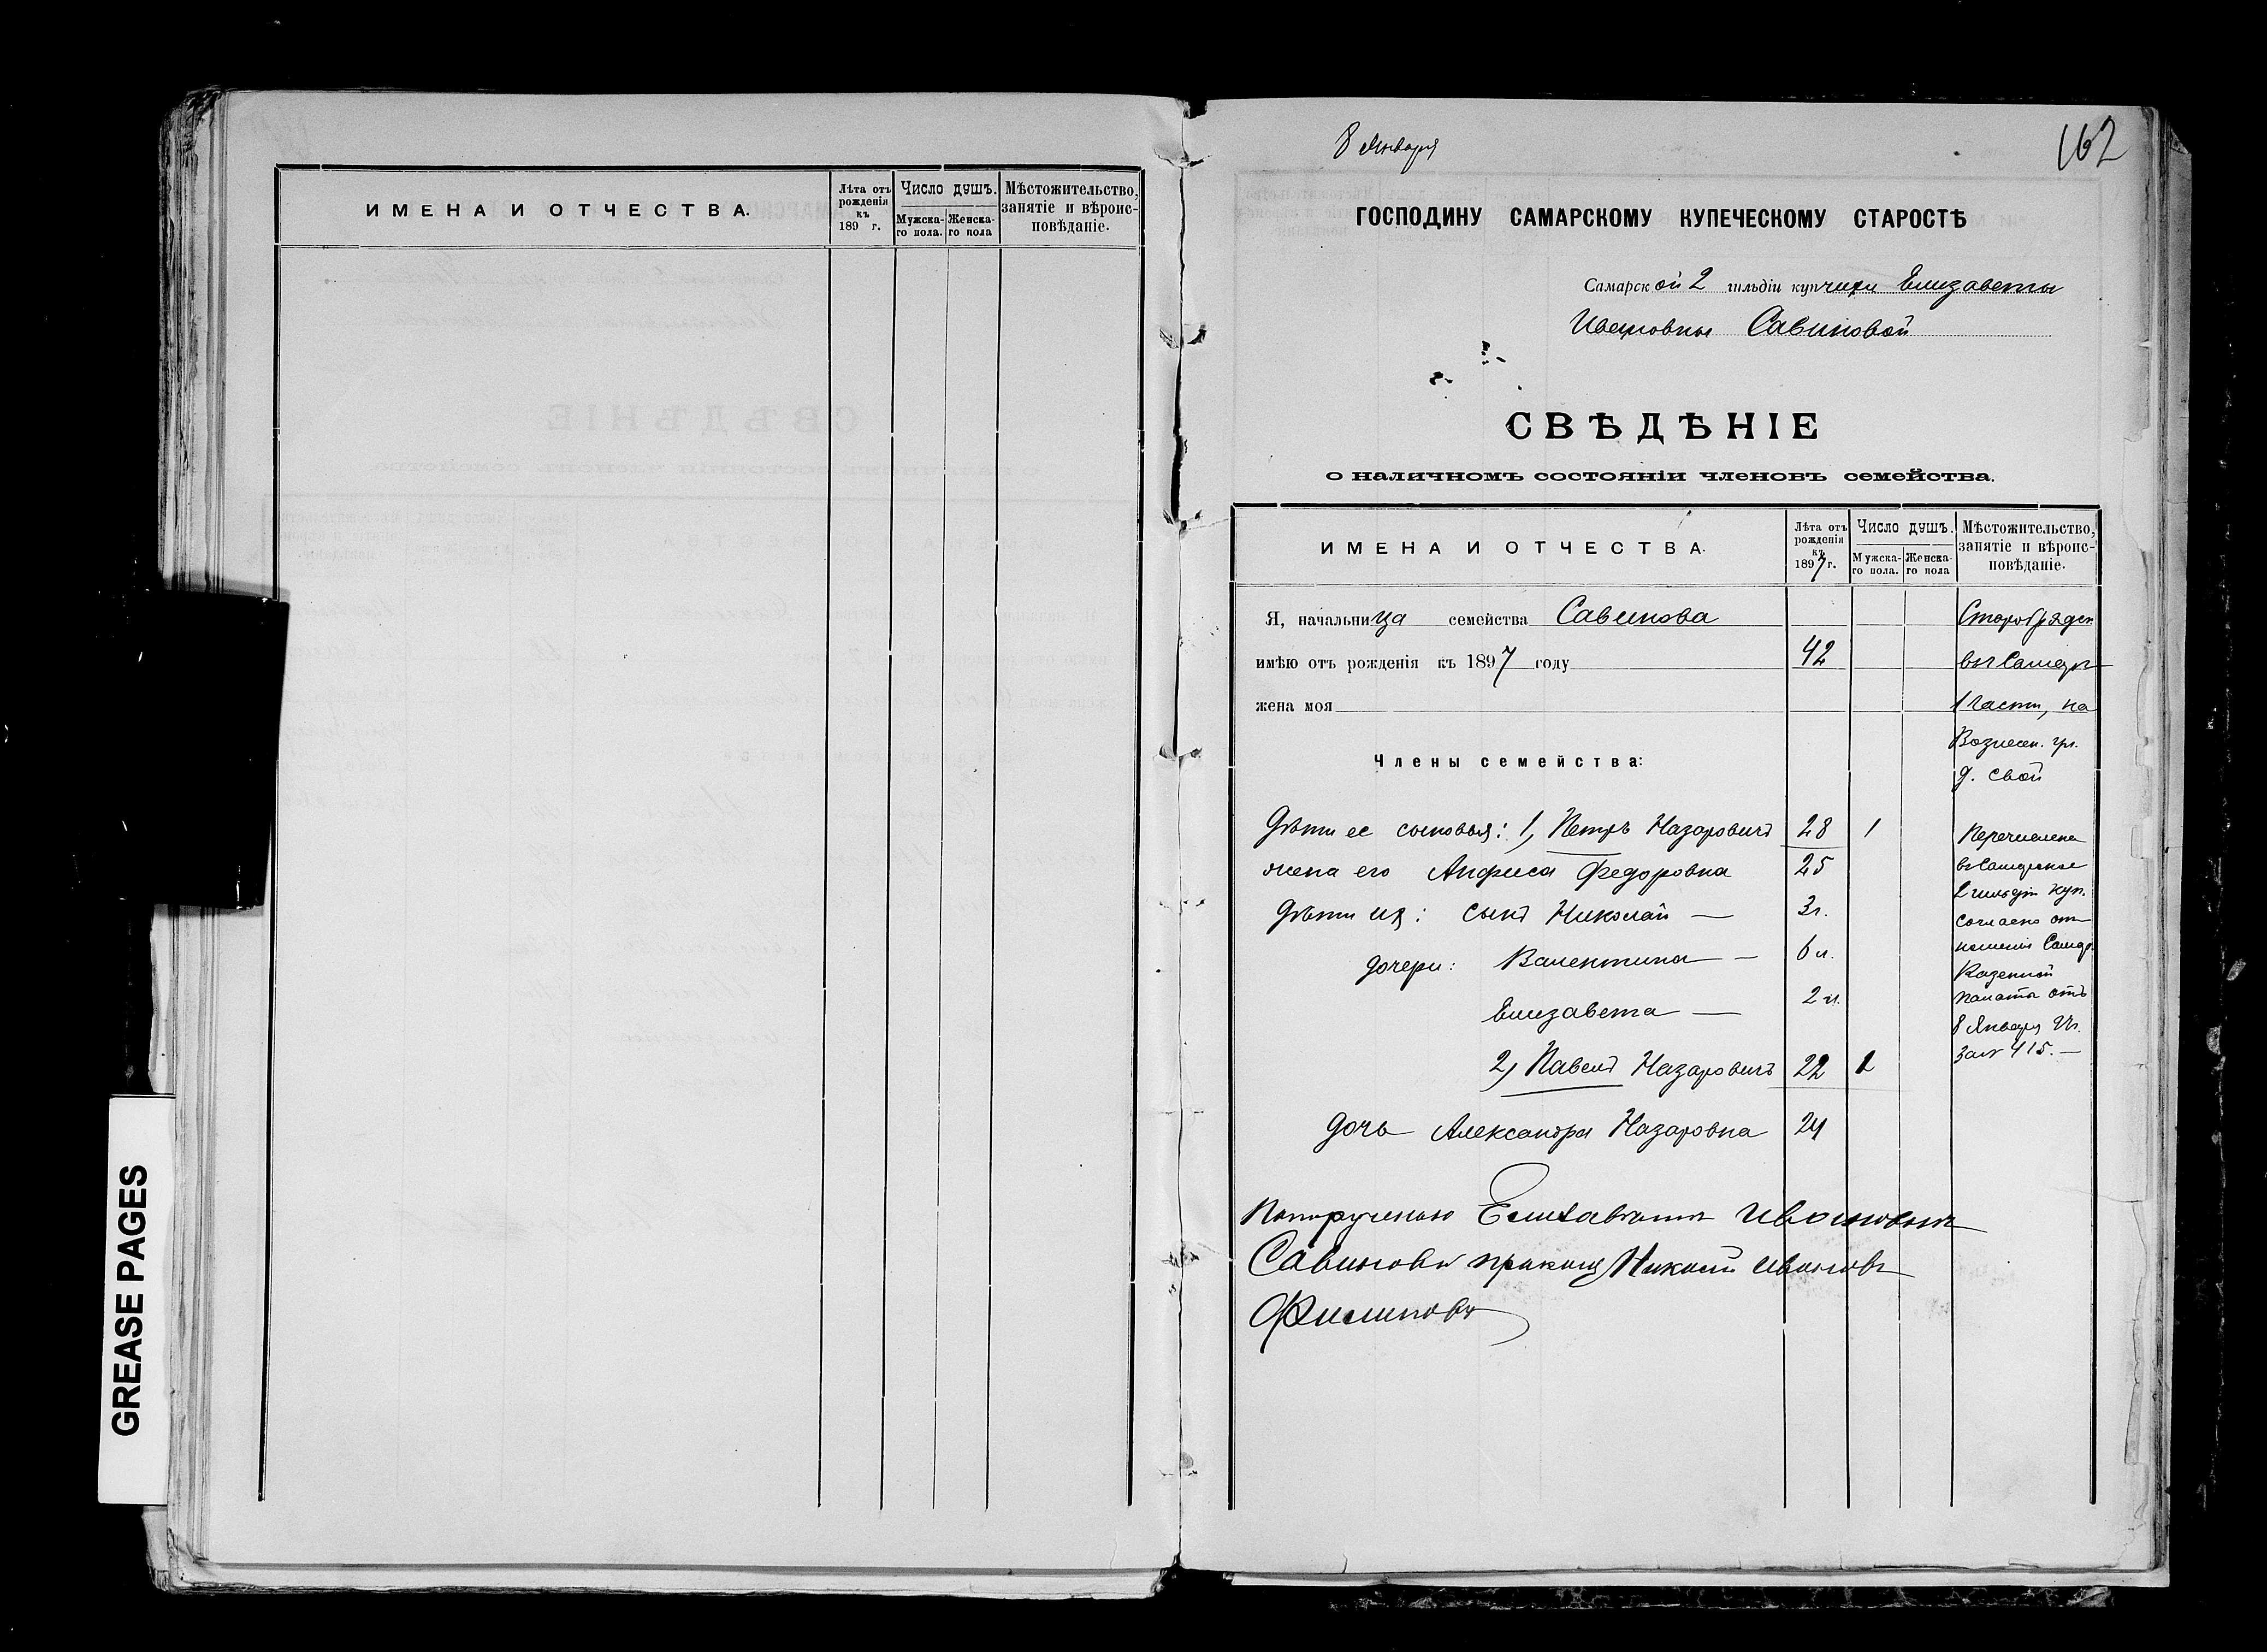 ИМЕНА И ОТЧЕСТВА.
Лѣта отъ рожденія къ 189 г.
Число душъ.
Мужска-го пола.
Женска-го пола
Мѣстожительство, занятіе и вѣроис-повѣданіе.
GREASE PAGES
8 Января
162
ГОСПОДИНУ САМАРСКОМУ КУПЕЧЕСКОМУ СТАРОСТѢ
Самарской 2 гильдіи купчихи Елизаветы
Ивановны Савиновой
СВѢДѢНІЕ
о наличномъ состояніи членовъ семейства.
ИМЕНА И ОТЧЕСТВА.
Лѣта отъ рожденія къ 1897 г.
Число душъ.
Мужска-го пола.
Женска-го пола
Мѣстожительство, занятіе и вѣроис-повѣданіе.
Я, начальница семейства Савинова
имѣю отъ рожденія къ 1897 году 42
жена моя
Старобрядч.
въ Самарѣ
1 части, на
Вознесен. ул.
д. свой
Члены семейства:
Дѣти ее сыновья: 1, Петръ Назаровичъ 28 1
жена его Анфиса Федоровна 25
Дѣти их: сынъ Николай — 3 г.
дочери: Валентина — 6 л.
Елизавета — 2 л.
2, Павелъ Назаровичъ 22 1
дочь Александра Назаровна 24
Перечислена
въ Самарскіе
2 гильдіи куп.
согласно от
ношенія Самар.
Казенной
палаты отъ
8 Января 97 г.
за № 415. —
По порученью Елизаветы Ивановны
Савиновы Николай Ивановъ
Филиповъ